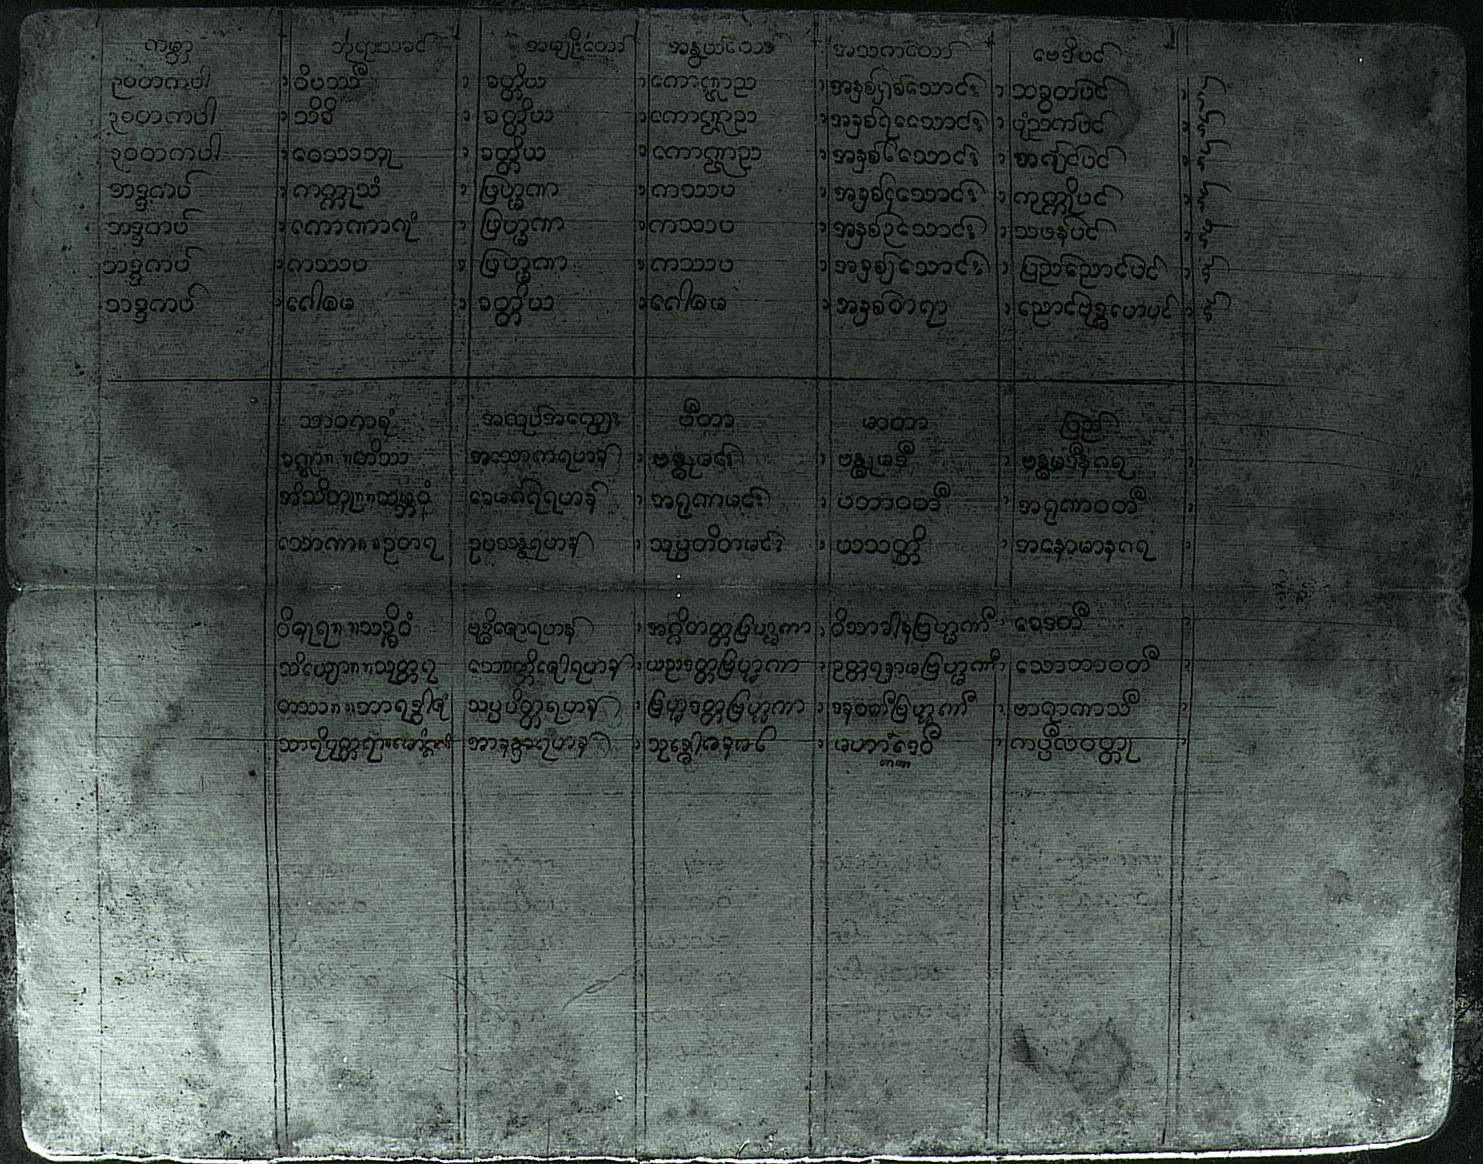 ကမ္ဘာ ဘုရားသခင် အမျိုးတော် အနွယ်တော် အသက်တော် ဗောဓိပင်
၃၁တကပါ ဝိပဿီ ခတ္တိယ ကောဏ္ဍည အနှစ်၈သောင်း သခွတ်ပင်
၃၁တကပါ သိခီ ခတ္တိယ ကောဏ္ဍည အနှစ်၇သောင်း
၃၁တကပါ ဝေဿဘူ ခတ္တိယ ကောဏ္ဍည အနှစ်၆သောင်း အကျဉ်ပင်
ဘဒ္ဒကပ် ကက္ကုသံ ဗြဟ္မဏ ကဿပ အနှစ်၄သောင်း ကုက္ကိုပင်
ဘဒ္ဒကပ် ကောဏာဂုံ ဗြဟ္မဏ ကဿပ အနှစ်၃သောင်း သဖန်ပင်
ဘဒ္ဒကပ် ကဿပ ဗြဟ္မဏ ကဿပ အနှစ်၂သောင်း ပြည်ညောင်ပင်
ဘဒ္ဒကပ် ဂေါတမ ခတ္တိယ ဂေါတမ အနှစ်တရာ ညောင်ဗုဒ္ဓဟေပင်
သာဝကစုံ အလုပ်အကျွေး ပီတာ မာတာ ပြည်
ခဏ္ဍ၊၊ တိဿ အသောကရဟန် ဗန္ဓုမင်း ဗန္ဓုမဒီ ဗန္ဓုမဒီနဂရ
အဘိဘူ၊၊သမ္ဘဝံ ခေမင်္ကရရဟန် အရုဏမင်း ပဘာဝတီ အရုဏဝတီ
သောဏ၊၊ဥတရ ဥပဿန္နရဟန် သုပ္ပတိတမင်း ယသတ္တိ အနောမာနဂရ
ဝိဓူရ၊၊သဉ္ဇိဝံ ဗုဒ္ဓိဇောရဟန် အဂ္ဂိဒတ္တဗြဟ္မဏ ဝိသာခါနဗြဟ္မဏီ ခေဒတီ
ဘိယျော၊၊သုတ္တရ သောတ္တိဇေါရဟန် ယညဒတ္တဗြဟ္မဏ ဥတ္တရနာမဗြဟ္မဏီ သောဘာဝတီ
တဿ၊၊ဘာရဒွါဇံ သပ္ပမိတ္တရဟန် ဗြဟ္မဒတ္တဗြဟ္မဏ ဓနဝတီဗြဟ္မဏီ ဗာရာဏသီ
သာရိပုတ္တရာ အာနန္ဒာရဟန် သုဒ္ဓေါဓန မဟာဒေဝီ ကပ္ပိလဝတ္ထု